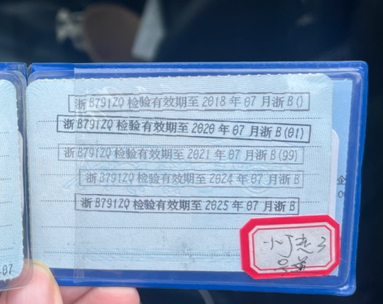 浙B791ZQ 检验有效期至 2018 年 07 月浙 B()
浙B791ZQ 检验有效期至 2020 年 07 月浙 B(01)
浙B791ZQ 检验有效期至 2021 年 07 月浙 B(99)
浙B791ZQ 检验有效期至 2024 年 07 月浙 B
浙B791ZQ 检验有效期至 2025 年 07 月浙 B
-07